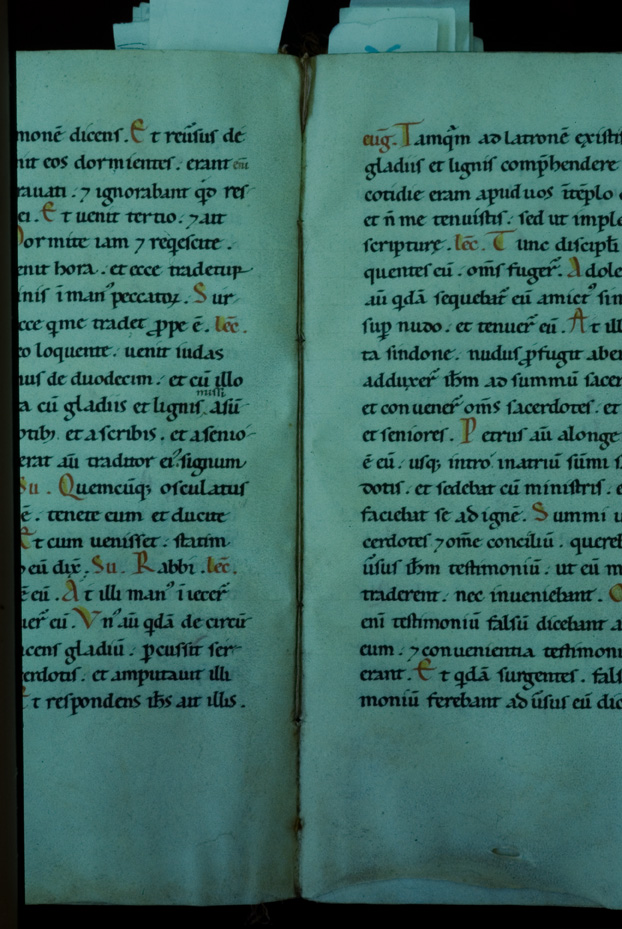 monē dicens. Et reūsus de
nit eos dormientes. erant eni
rauati. ⁊ ignorabant qd res
ei. Et uenit tertio. ⁊ ait
Dormite iam ⁊ reqescite.
enit hora. et ecce tradetur
inis ī man᾽ peccatoꝝ. Sur
cce qme tradet ꝓpe ē. lec̄.
co loquente. uenit iudas
nus de duodecim. et cū illo
a cū gladiis et lignis missi asū
otib; et ascribis. et asenio
erat aū traditor ei᾽. signum
Su. Quemcūq; osculatus
ē. tenete eum et ducite
Et cum uenisset. statim
eū dix̄. Su. Rabbi. lec̄.
ē eū. At illi man᾽ iiecer̄
uer̄ eū. Vn᾽ aū qdā de circū
icens gladiū. pcussit ser
cerdotis. et amputauit illi
Et respondens ih̄s ait illis.
eug̅. Tamqm̄ ad latronē existi
gladiis et lignis comp̄hendere
cotidie eram apud uos ītēplo
et n̄ me tenuistis. sed ut imple
scripturę. lec̄. Tunc discipl̄i
quentes eū. om̄s fuger̄. Adole
aū qdā sequebat᷑ eū amict᾽ sin
sup nudo. et tenuer̄ eū. At ill
ta sindone. nudus ꝓfugit abei
adduxer̄ ih̄m ad summū sacer
et conuener̄ om̄s sacerdotes. et
et seniores. Petrus aū alonge
ē eū. usq; intro inatriū sūmi s
dotis. et sedebat cū ministris. e
faciebat se ad ignē. Summi u
cerdotes ⁊ om̄e conciliū. quereb
ūsus ih̄m testimoniū. ut eū m
traderent. nec inueniebant.
eni testimoniū falsū dicebant a
eum. ⁊ conuenientia testimoni
erant. Et qdā surgentes. fals
moniū ferebant ad ūsus eū dic